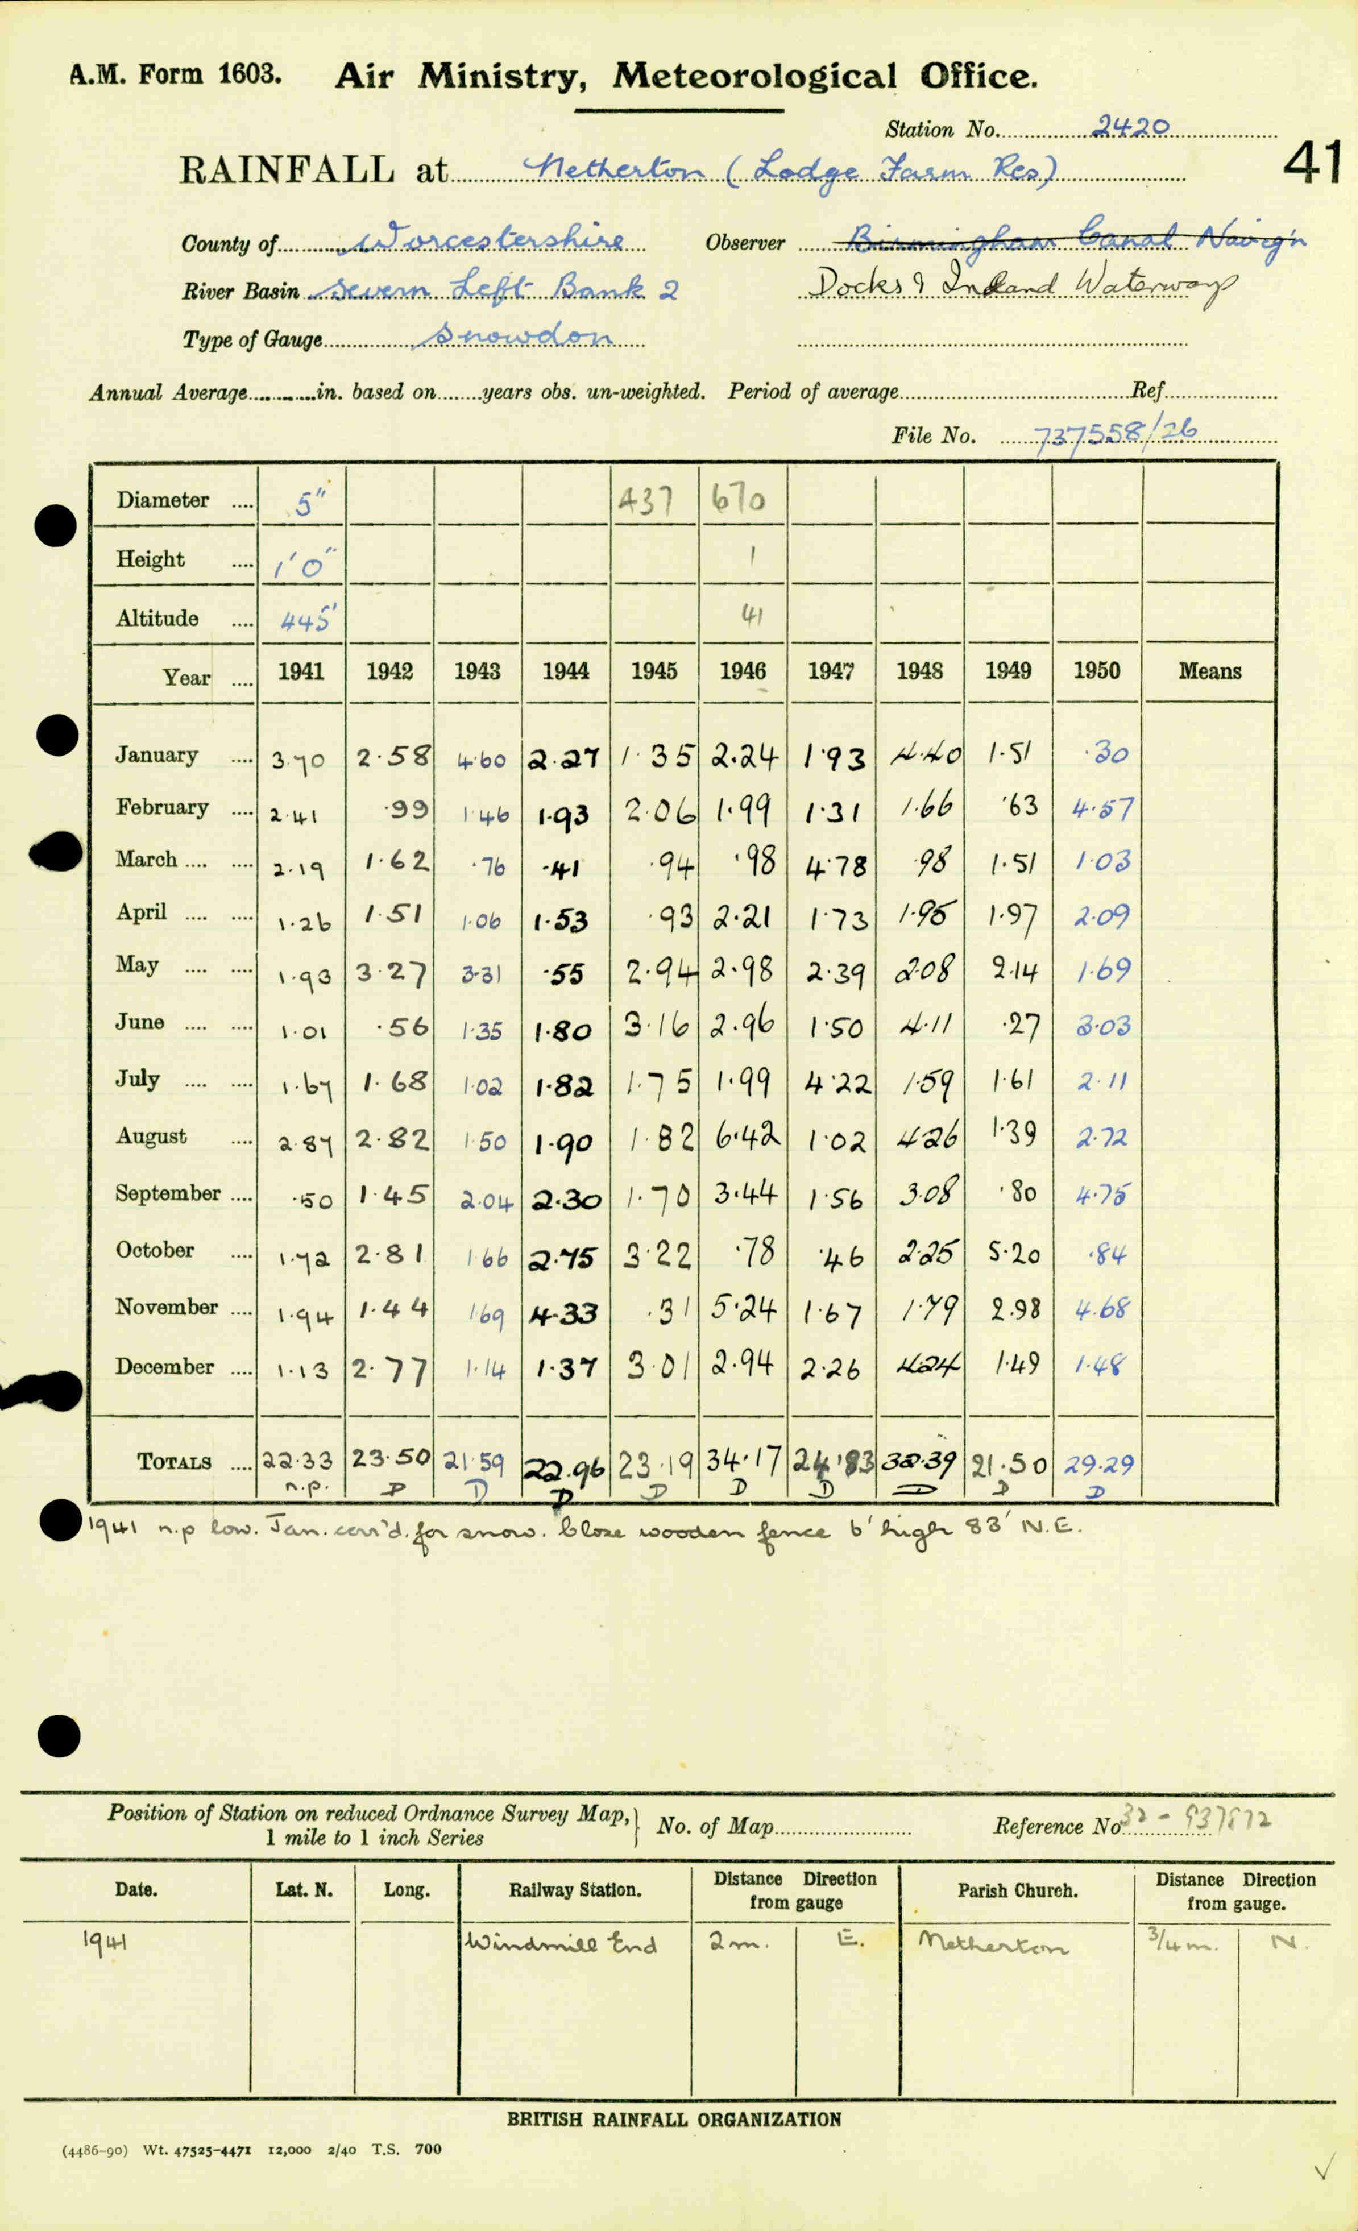 A.M. Form 1603. Air Ministry, Meteorological Office.
Station No. 2420
41
RAINFALL at Netherton (Lodge Farm Res)
County of Worcestershire Observer Birmingham Canal Navig'n
River Basin Severn Left Bank 2 Docks & Inland Waterways
Type of Gauge Snowdon
Annual Average in. based on years obs. un-weighted. Period of average Ref
File No. 737558/26
Diameter 5" 437 670
Height 1'0" 1
Altitude 445' 41
Year 1941 1942 1943 1944 1945 1946 1947 1948 1949 1950 Means
January 3.70 2.58 4.60 2.27 1.35 2.24 1.93 4.40 1.51 .30
February 2.41 .99 1.46 1.93 2.06 1.99 1.31 1.66 .63 4.57
March 2.19 1.62 .76 .41 .94 .98 4.78 .98 1.51 1.03
April 1.26 1.51 1.06 1.53 .93 2.21 1.73 1.95 1.97 2.09
May 1.93 3.27 3.31 .55 2.94 2.98 2.39 2.08 2.14 1.69
June 1.01 .56 1.35 1.80 3.16 2.96 1.50 4.11 .27 3.03
July 1.67 1.68 1.02 1.82 1.75 1.99 4.22 1.59 1.61 2.11
August 2.87 2.82 1.50 1.90 1.82 6.42 1.02 4.26 1.39 2.72
September .50 1.45 2.04 2.30 1.70 3.44 1.56 3.08 .80 4.75
October 1.72 2.81 1.66 2.75 3.22 .78 .46 2.25 5.20 .84
November 1.94 1.44 1.69 4.33 .31 5.24 1.67 1.79 2.98 4.68
December 1.13 2.77 1.14 1.37 3.01 2.94 2.26 4.24 1.49 1.48
TOTALS 22.33 23.50 21.59 22.96 23.19 34.17 24.83 32.39 21.50 29.29
n.p. D D D D D D D D D
1941 n.p low. Jan. corr'd. for snow. Close wooden fence 6' high 83' N.E.
Position of Station on reduced Ordnance Survey Map, 1 mile to 1 inch Series } No. of Map Reference No 32-
Date. Lat. N. Long. Railway Station. Distance Direction from gauge Parish Church. Distance Direction from gauge.
1941 Windmill End 2m. E. Netherton 3/4 m. N.
BRITISH RAINFALL ORGANIZATION
(4486-90) Wt. 47525-4471 12,000 2/40 T.S. 700